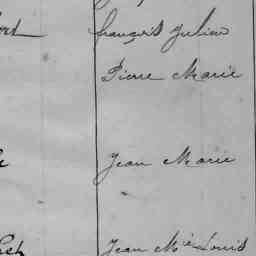 françois Julien
Pierre Marie
Jean Marie
Jean Mie Louis